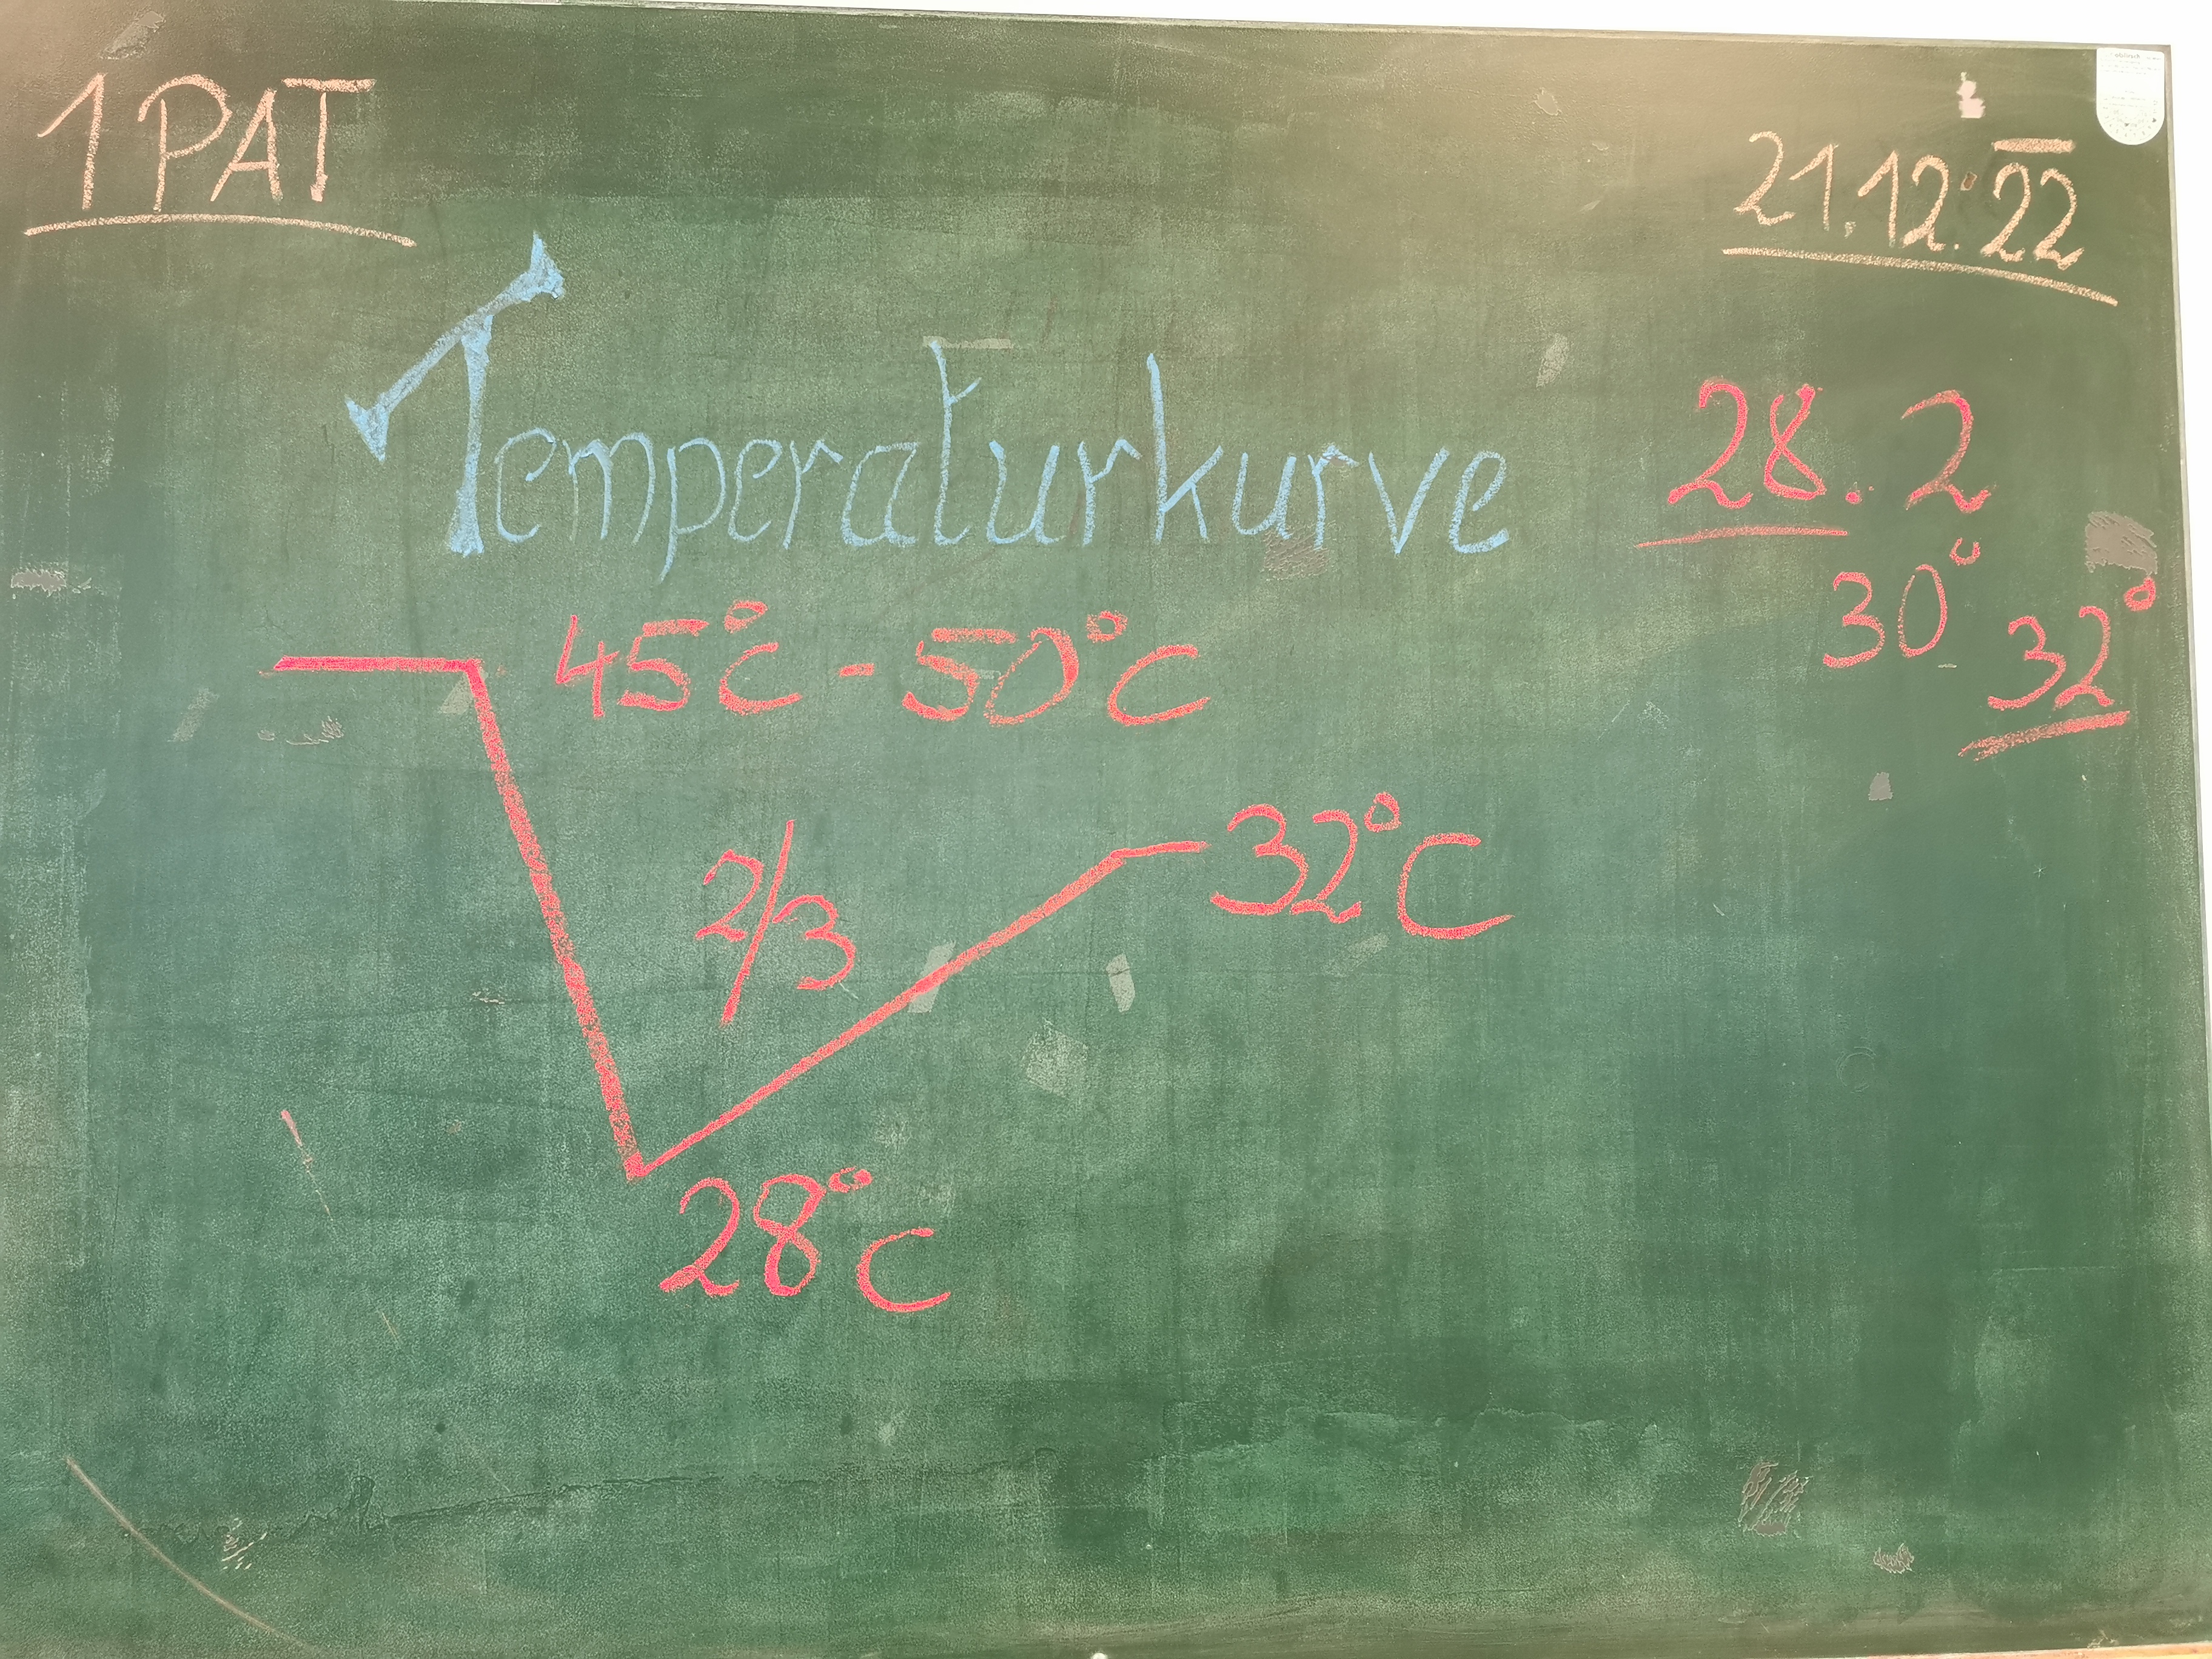 1 PAT
21.12.22
Temperaturkurve
28. 2
30°
32°
45°C - 50°C
2/3
32°C
28°C